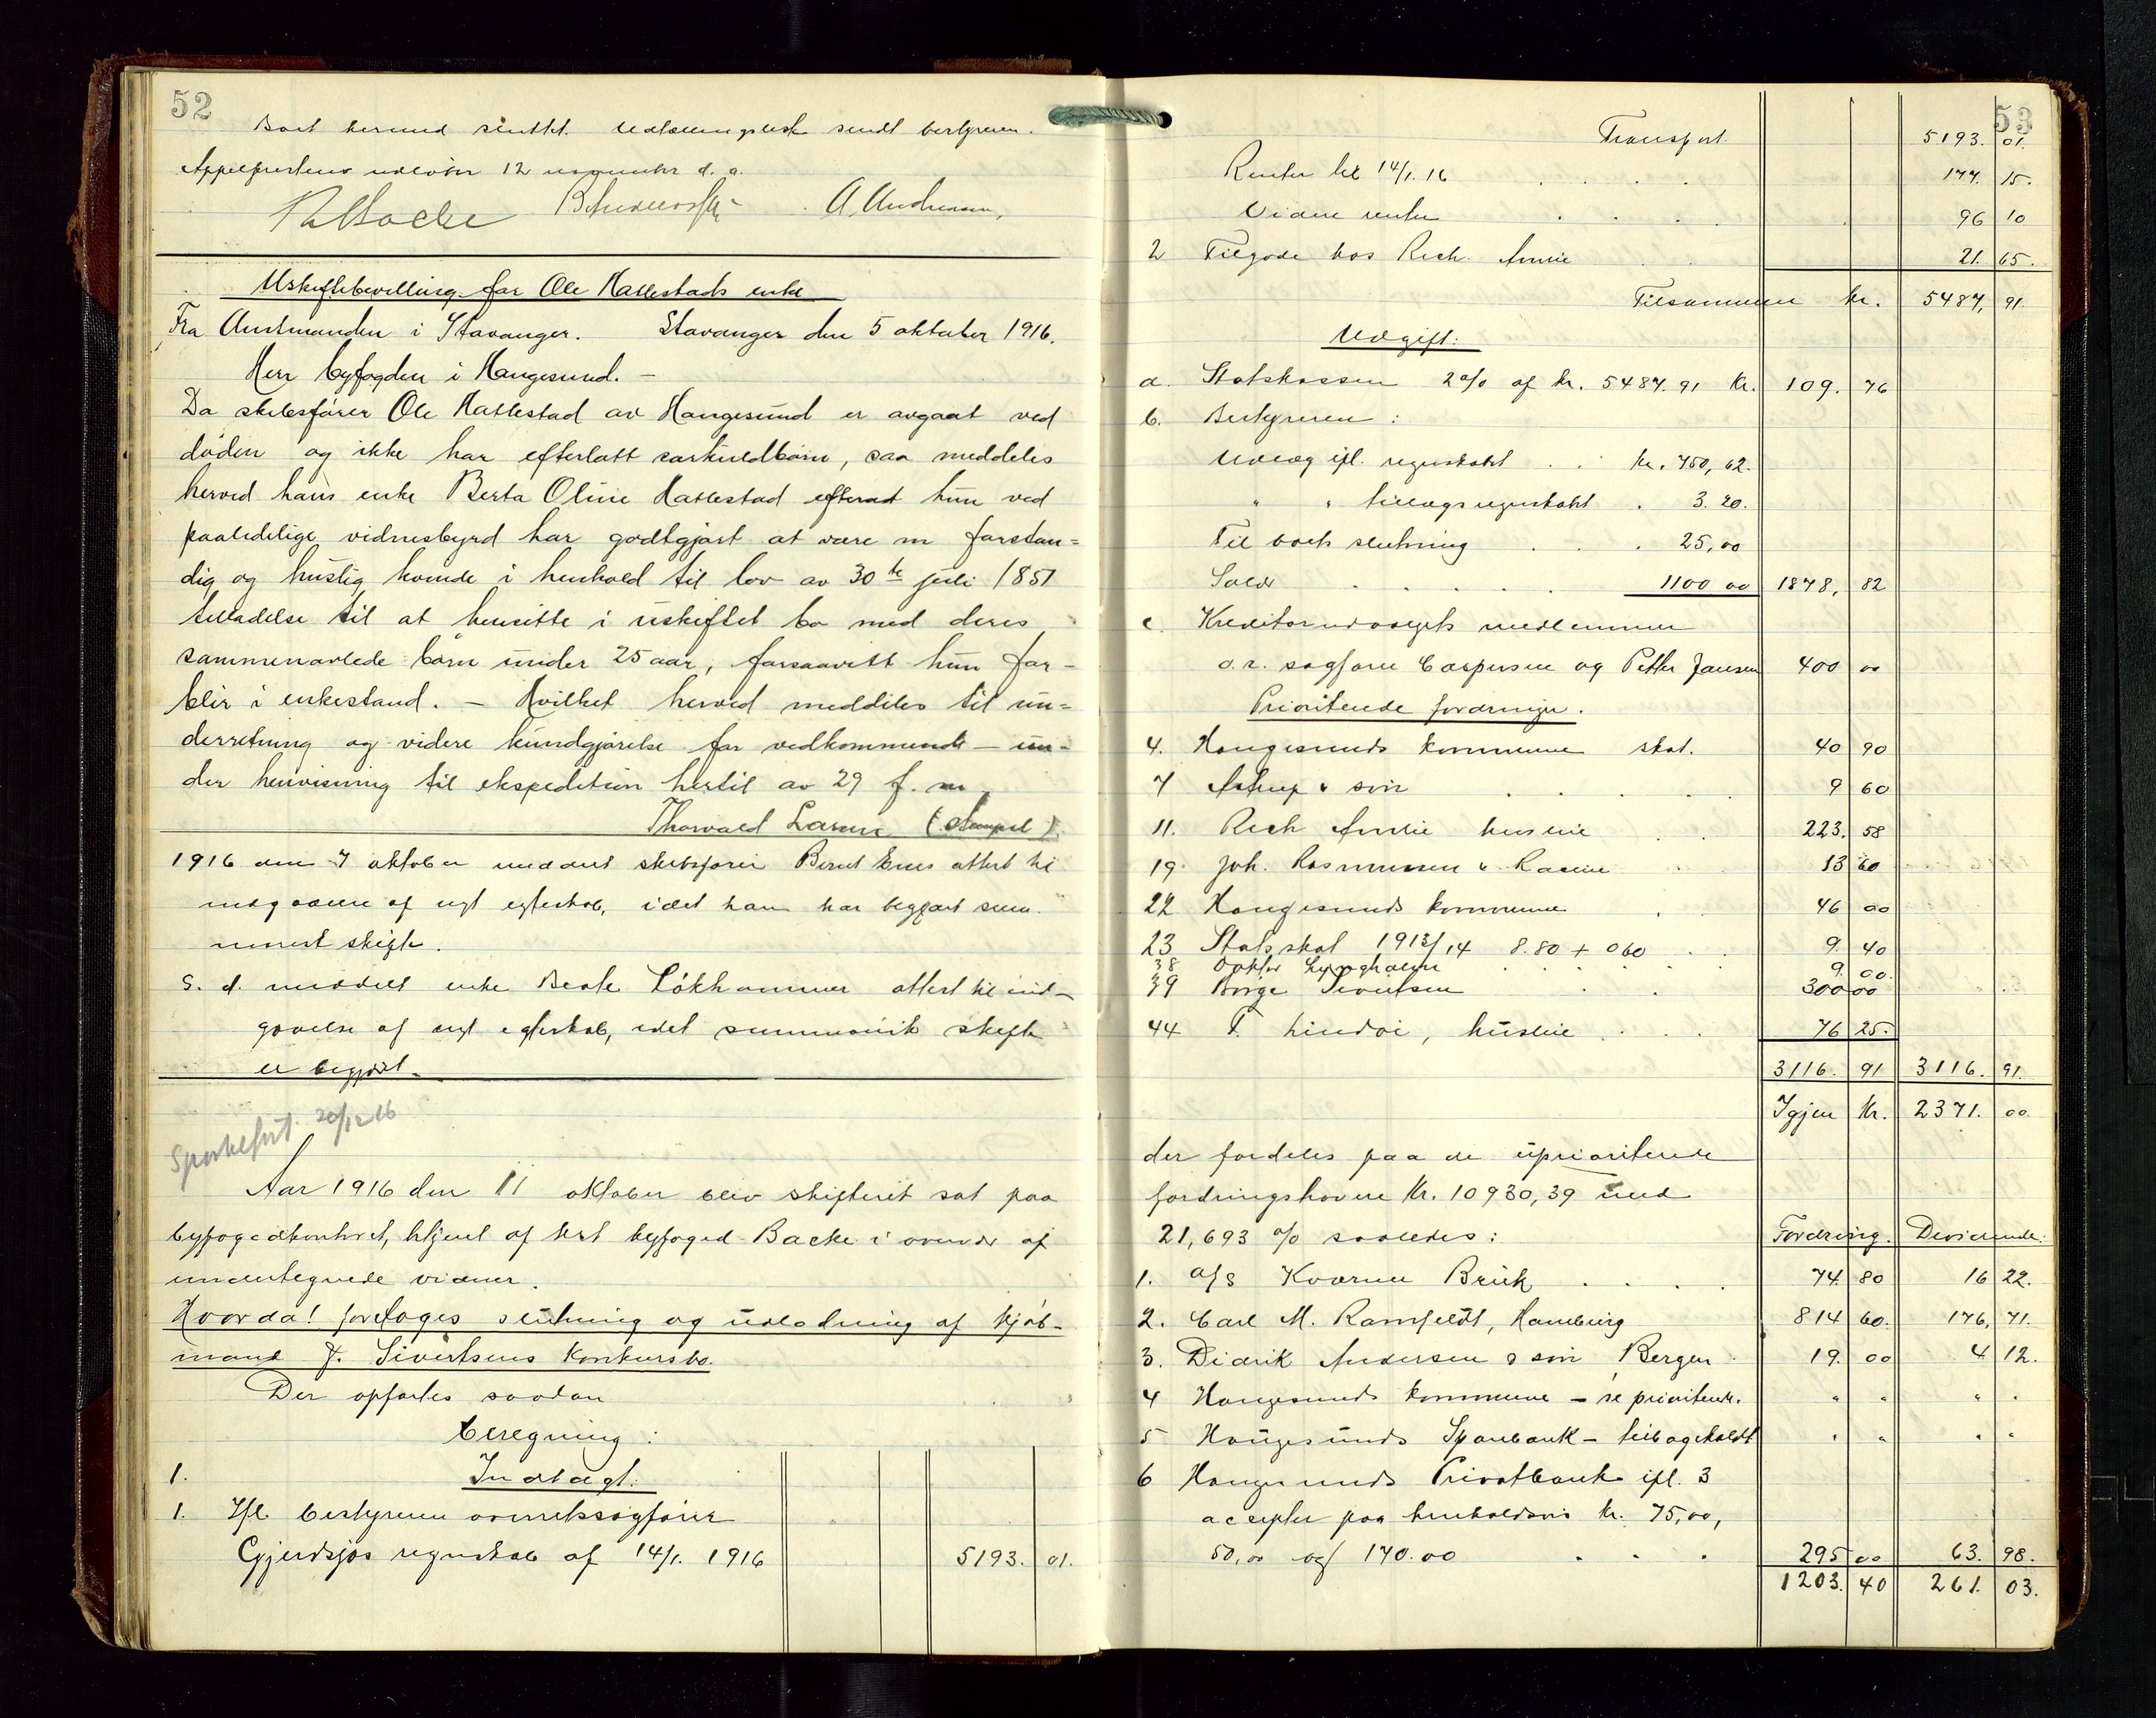 52
Boet hermed sluttet. Utlodningsliste sendt bestyreren.
Appelfristen utløber 12 november d. a.
A. Andreassen,
Uskiftebevilling for Ole Hallestads enke
Fra Amtmanden i Stavanger. Stavanger den 5 oktober 1916.
Herr byfogden i Haugesund. –
Da skibsfører Ole Hallestad av Haugesund er avgaat ved
døden og ikke har efterlatt særkuldbørn, saa meddeles
herved hans enke Berta Oline Hallestad efterat hun ved
paalidelige vidnesbyrd har godtgjort at være en forstan=
dig og huslig kvinde i henhold til lov av 30te juli 1851
tilladelse til at hensitte i uskiftet bo med deres
sammenavlede børn under 25 aar, forsaavitt hun for-
blir i enkestand. – Hvilket herved meddeles til un=
derretning og videre kundgjørelse for vedkommende – un-
der henvisning til ekspedition hertil av 29 f. m.
Thorvald Larsen (Stempel).
1916 den 7 oktober meddelt skibsfører Bernt attest til
indgaaelse af nyt egteskab, idet han har begjært sum-
marisk skifte.
S. d. meddelt enke Beate Løkhammer attest til ind-
gaaelse af nyt egteskab, idet summarisk skifte
er begjært.
20/12 16
Aar 1916 den 11 oktober blev skifteret sat paa
byfogedkontoret, betjent af kst byfoged Backe i overvær af
undertegnede vidner.
Hvorda! foretoges slutning og udlodning af kjøb-
mand J. Sivertsens konkursbo.
Der opførtes saadan
beregning:
1. Indtægt:
1. Ifl. bestyreren overretssagfører
Gjerdsjøs regnskab af 14/1. 1916 5193. 01.
53
Transport. 5193. 01.
Renter til 14/1. 16 177. 15.
Videre renter 96 10
2 Tilgode hos Rich. Amlie 21. 65.
Tilsammen kr. 5487, 91.
Udgift:
a. Statskassen 2 % af kr. 5487. 91 Kr. 109. 76
b. Bestyreren:
Udlæg ifl. regnskabet kr. 750, 62.
" " tillægsregnskabet 3. 20.
Til boets slutning 25,00
Salær 1100 00 1878, 82
c. Kreditorudvalgets medlemmer
o.r. sagfører Caspersen og Petter Jansen 400 00
Prioriterede fordringer.
4. Haugesunds kommune skat. 40 90
7 Astrup & søn 9 60
11. Rich Amlie husleie 223. 58
19. Joh. Rasmussen & Racine 13 60
22 Haugesunds kommune 46 00
23 Statsskat 1913/14 8.80 + 060 9. 40
38 Doktor Lyngholm 9. 00.
39 Børge Sivertsen 300 00
44 T. Lindøi, husleie 76 25.
3116. 91 3116. 91.
Igjen Kr. 2371. 00
der fordeles paa de uprioriterede
fordringshavere Kr. 10930,39 med
21,693 % saaledes: Fordring. Dividende:
1. A/S Kværner Bruk 74. 80 16 22.
2. Carl M. Ramfeldt, Hamburg 814 60. 176, 71.
3. Didrik Andersen & søn Bergen 19. 00 4 12.
4 Haugesunds kommune – se prioriterede. " " " "
5 Haugesunds Sparebank – tilbageholdt " " " "
6 Haugesunds Privatbank ifl. 3
accepter paa henholdsvis kr. 75,00,
50,00 og 170.00 295 00 63. 98.
1203. 40 261. 03.